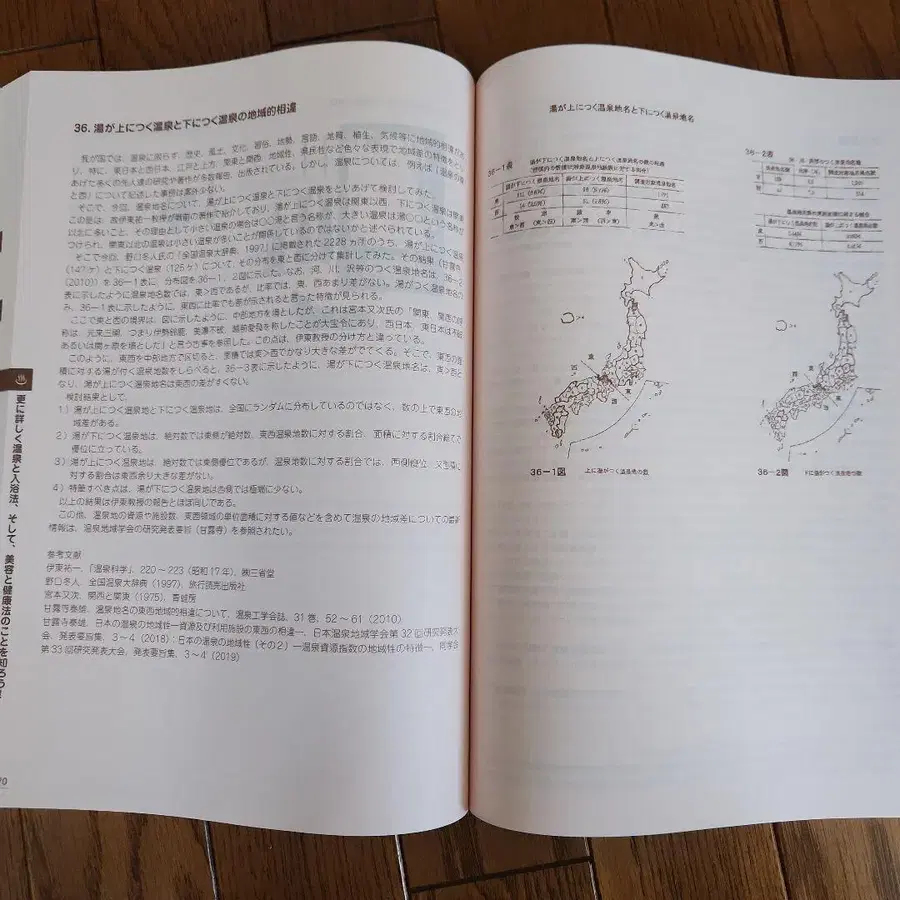 36. 湯が上につく温泉と下につく温泉の地域的相違
我が国では、温泉に限らず、歴史、風土、文化、習俗、地勢、言語、地質、植生、気候等に地域的相違があ
り、特に、東日本と西日本、江戸と上方、関東と関西、地域性、県民性など色々な表現で地域差の特徴をとり
あげた多くの先人達の研究や著作が多数報告、出版されている。しかし、温泉については、例えば「温泉の東
と西」について記述した事例は案外少ない。
そこで、今回、温泉地名について、湯が上につく温泉と下につく温泉をとりあげて検討してみた。
この差は、故伊東祐一教授が戦前の著作で紹介しており、湯が上につく温泉は関東以西、下につく温泉は関東
以北に多いこと、その理由として小さい温泉の場合は〇〇湯と言う名称が、大きい温泉は湯〇〇という名称が
つけられ、関東以北の温泉は小さい温泉が多いことが関係しているのではないかと述べられている。
そこで今回、野口冬人氏の「全国温泉大辞典、1997」に掲載された2228ヵ所のうち、湯が上につく温泉
(147ヶ)と下につく温泉(126ヶ)について、その分布を東と西に分けて集計してみた。その結果(甘露寺
(2010))を36-1表に、分布図を36-1、2図に示した。なお、河、川、沢等のつく温泉地名は、36-2
表に示したように温泉地名数では、東>西であるが、比率では、東、西あまり差がない。湯がつく温泉地名の
み、36-1表に示したように、東西に比率でも差が示されると言った特徴が見られる。
ここで東と西の境界は、図に示したように、中部地方を境としたが、これは宮本又次氏の「関東、関西の
称は、元来三関、つまり伊勢鈴鹿、美濃不破、越前愛発を称したことが大宝令にあり、西日本、東日本は不破
あるいは関ヶ原を境とした」と言う古事を参照した。この点は、伊東教授の分け方と違っている。
このように、東西を中部地方で区切ると、面積では東>西でかなり大きな差がでてくる。そこで、東西の面
積に対する湯が付く温泉地数をしらべると、36-3表に示したように、湯が下につく温泉地名は、東>西と
なり、湯が上につく温泉地名は東西の差がすくない。
検討結果として、
1)湯が上につく温泉地と下につく温泉地は、全国にランダムに分布しているのではなく、数の上で東西の地
域差がある。
2)湯が下につく温泉地は、絶対数では東側が絶対数、東西温泉地数に対する割合、面積に対する割合総てで
優位に立っている。
3)湯が上につく温泉地は、絶対数では東側優位であるが、温泉地数に対する割合では、西側優位、又面積に
対する割合は東西余り大きな差がない。
4)特筆すべき点は、湯が下につく温泉地は西側では極端に少ない。
以上の結果は伊東教授の報告とほぼ同じである。
この他、温泉地の資源や施設数、東西領域の単位面積に対する値などを含めて温泉の地域差についての最新
情報は、温泉地域学会の研究発表要旨(甘露寺)を参照されたい。
参考文献
伊東祐一、「温泉科学」、220〜223(昭和17年)、㈱三省堂
野口冬人、全国温泉大辞典(1997)、旅行読売出版社
宮本又次、関西と関東(1975)、青蛙房
甘露寺泰雄、温泉地名の東西地域的相違について、温泉工学会誌、31巻、52〜61(2010)
甘露寺泰雄、日本の温泉の地域性一資源及び利用施設の東西の相違一、日本温泉地域学会第32回研究発表大
会、発表要旨集、3〜4(2018):日本の温泉の地域性(その2)一温泉資源指数の地域性の特徴一、同学会
第33回研究発表大会、発表要旨集、3〜4(2019)
更に詳しく温泉と入浴法、そして、美容と健康法のことを知ろう!
70
湯が上につく温泉地名と下につく温泉地名
36-1表
36-2表
東
西
東
西
36-1図 上に湯がつく温泉地の数
東
西
東
西
36-2図 下に湯がつく温泉地の数